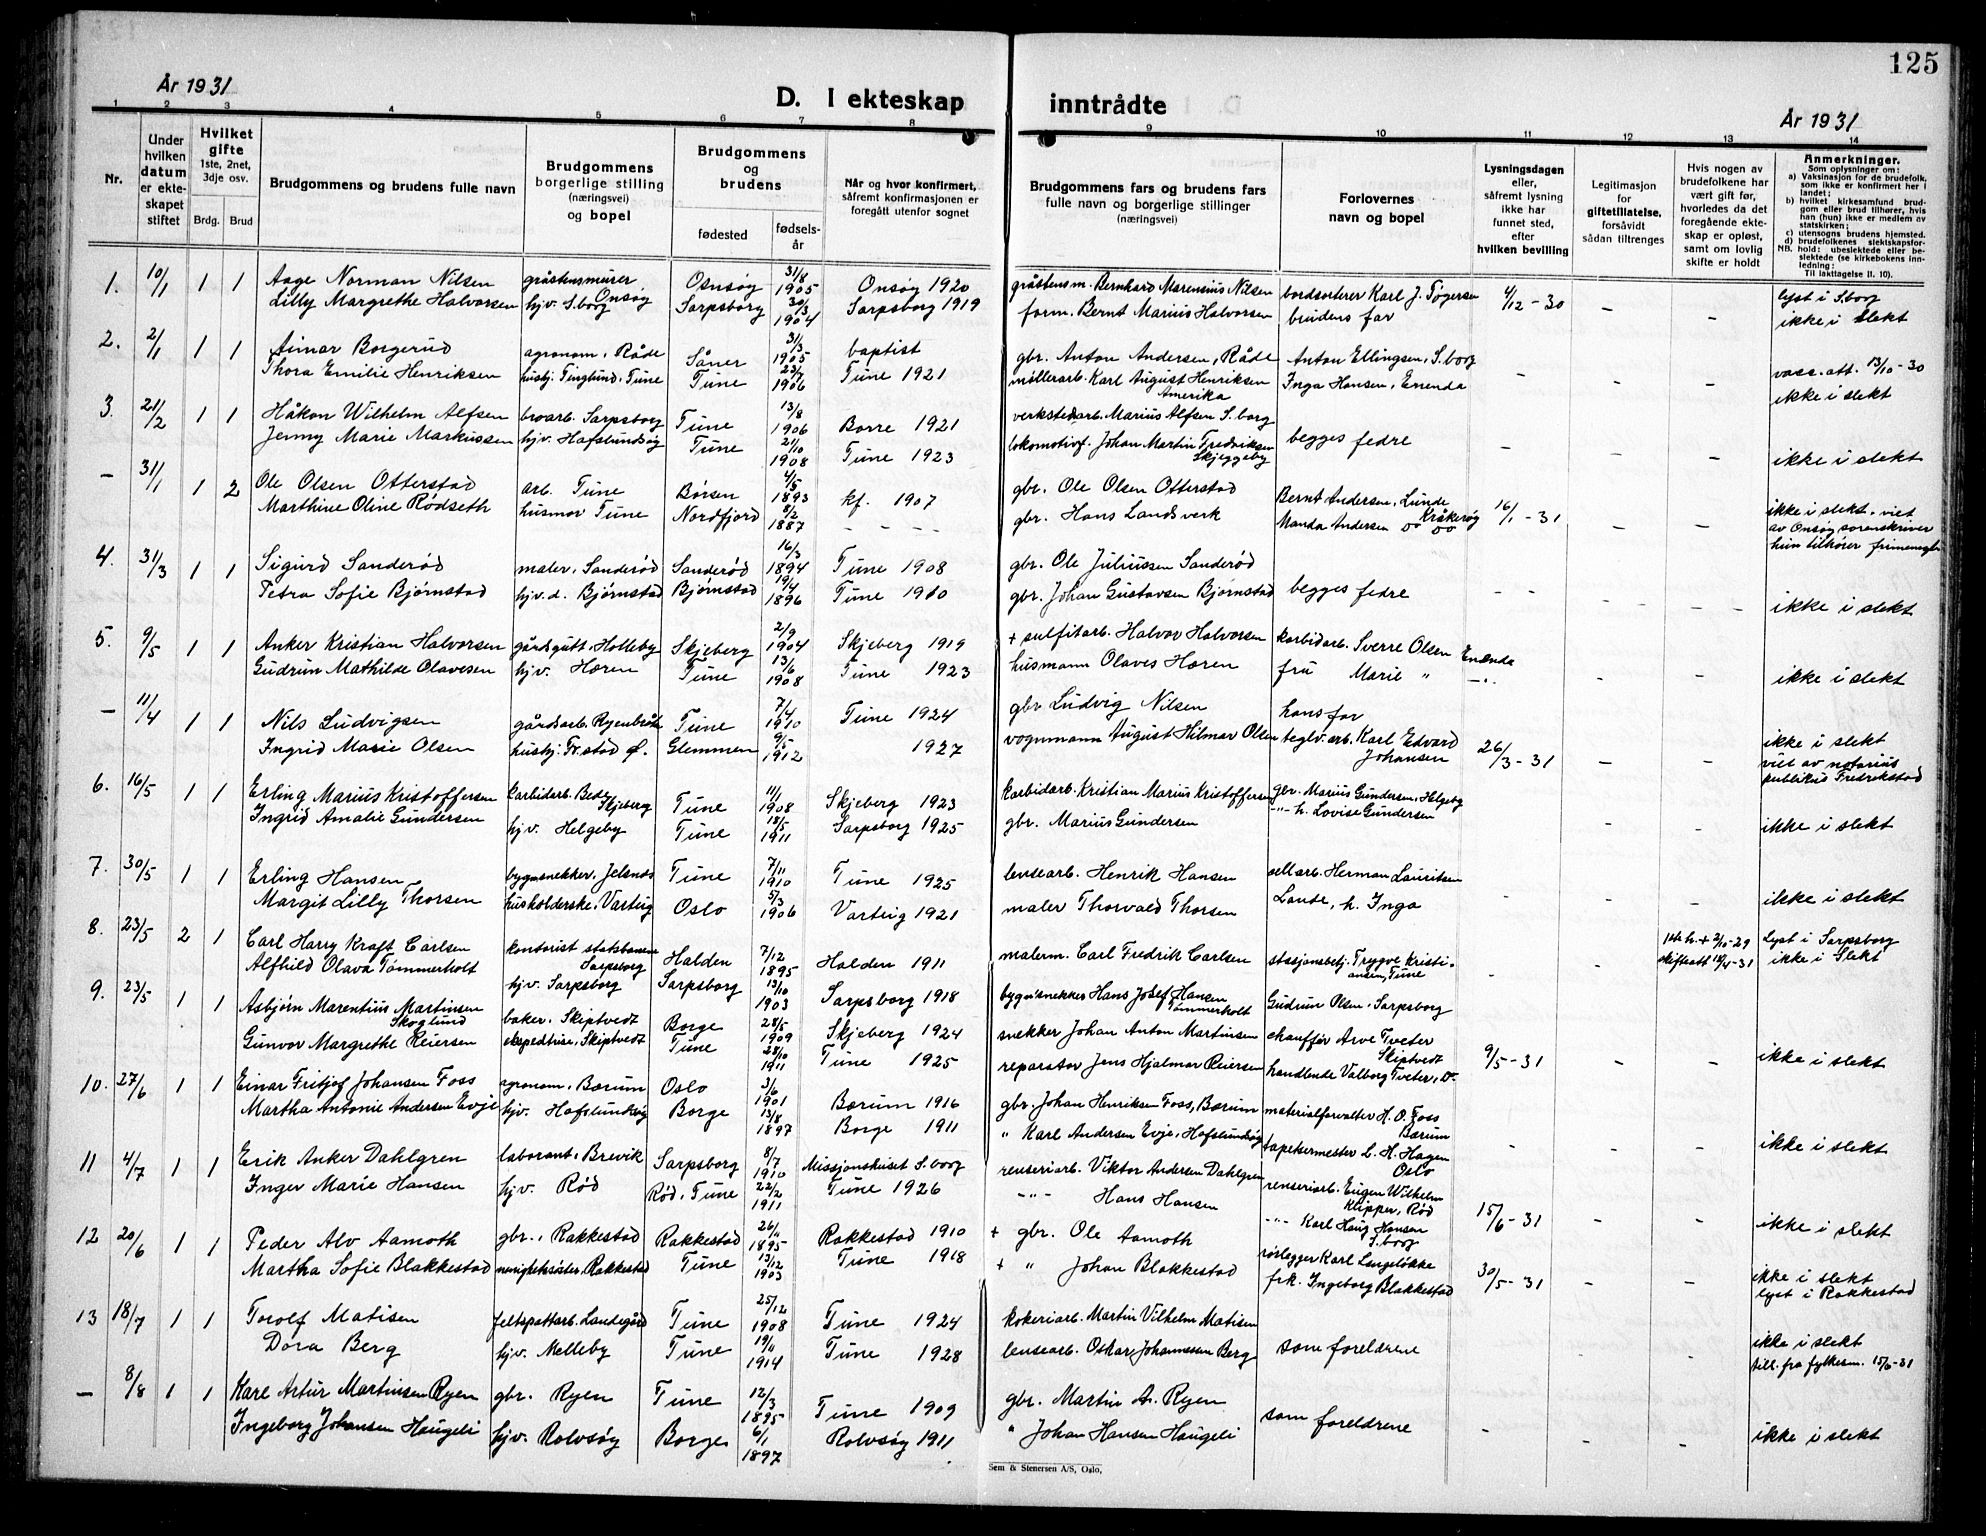 125
År 1931
D. I ekteskap inntrådte
År 1931
1 2 3 4 5 6 7 8 9 10 11 12 13 14
Nr.
Under hvilken datum er ekteskapet stiftet
Hvilket gifte 1ste, 2net, 3dje osv.
Brdg. Brud
Brudgommens og brudens fulle navn
Brudgommens borgerlige stilling (næringsvei) og bopel
Brudgommens og brudens
fødested
fødselsår
Når og hvor konfirmert, såfremt konfirmasjonen er foregått utenfor sognet
Brudgommens fars og brudens fars fulle navn og borgerlige stillinger (næringsvei)
Forlovernes navn og bopel
Lysningsdagen eller, såfremt lysning ikke har funnet sted, efter hvilken bevilling
Legitimasjon for giftetillatelse, forsåvidt sådan tiltrenges
Hvis nogen av brudefolkene har vært gift før, hvorledes da det foregående ekteskap er opløst, samt om lovlig skifte er holdt
Anmerkninger.
Som oplysninger om:
a) Vaksinasjon for de brudefolk, som ikke er konfirmert her i landet;
b) hvilket kirkesamfund brudgom eller brud tilhører, hvis han (hun) ikke er medlem av statskirken;
c) utensogns brudens hjemsted.
d) brudefolkenes slektskapsforhold: ubeslektede eller beslektede (se kirkebokens innledning:
NB. Til iakttagelse II. 10).
1. 10/1 1 1 Aage Norman Nilsen gråstensmurer Onsøy Onsøy 31/8 1905 Onsøy 1920 gråstensm. Bernhard Marensius Nilsen bordsorterer Karl J. Tøgersen 4/12-30 - - lyst i S.borg
Lilly Margrethe Halvorsen hjv. S.borg Sarpsborg 30/3 1904 Sarpsborg 1919 form. Bernt Marius Halvorsen brudens far ikke i slekt
2. 2/1 1 1 Aimar Borgerud agronom, Råde Såner 31/3 1905 baptist gbr. Anton Andersen, Råde Anton Ellingsen, S.borg - - - vacc. att. 13/10-30
Thora Emilie Henriksen husbj. Tinglund, Tune Tune 23/7 1906 Tune 1921 møllerarb. Karl August Henriksen Amerika Inga Hansen, Enenda ikke i slekt
3. 21/2 1 1 Håkon Wilhelm Alfsen broarb. Sarpsborg Tune 13/8 1906 Borre 1921 verkstedarb. Marius Alfsen S.borg begges fedre - - -
Jenny Marie Markussen hjv. Hafslundsøy Tune 21/10 1908 Tune 1923 lokomotivf. Johan Martin Fredriksen Skjeggeby ikke i slekt
- 31/1 1 2 Ole Olsen Otterstad arb. Tune Børsen 4/5 1893 kf. 1907 gbr. Ole Olsen Otterstad Bernt Andersen, Lunde Kråkerøy 16/1-31 - - ikke i slekt. viet av Onsøy sorenskriver
Marthine Oline Rødseth husmor Tune Nordfjord 8/2 1887 - - - - gbr. Hans Landsverk Manda Andersen hun tilhører frimenigh.
4. 31/3 1 1 Sigurd Sanderød maler, Sanderød Sanderød 16/3 1894 Tune 1908 gbr. Ole Juliussen Sanderød begges fedre - - -
Petra Sofie Bjørnstad hjv. d. Bjørnstad Bjørnstad 19/4 1896 Tune 1910 gbr. Johan Gustavsen Bjørnstad ikke i slekt
5. 9/5 1 1 Anker Kristian Halvorsen gårdsgutt, Holleby Skjeberg 2/9 1904 Skjeberg 1919 + sulfitarb. Halvor Halvorsen karbidarb. Sverre Olsen Enende - -
Gudrun Mathilde Olavesen hjv. Haren Tune 13/6 1908 Tune 1923 husmann Olaves Haren fru Marie " -"- ikke i slekt
- 11/4 1 1 Nils Ludvigsen gårdsarb. Ryenbråte Tune 7/4 1910 Tune 1924 gbr Ludvig Nilsen hans far 26/3-31 - - ikke i slekt
Ingrid Marie Olsen husbj. Fr.stad Ø. Glemmen 9/5 1912 1927 vognmann August Hilmar Olsen teglv.arb. Karl Edvard Johansen viet av notarius publikus Fredrikstad
6. 16/5 1 1 Erling Marius Kristoffersen karbidarb. Bede Skjeberg Tune 11/1 1908 Skjeberg 1923 karbidarb. Kristian Marius Kristoffersen gbr. Marius Gundersen, Helgeby - -
Ingrid Amalie Gundersen hjv. Helgeby Tune 18/5 1911 Sarpsborg 1925 gbr. Marius Gundersen -"- h. Lovise Gundersen ikke i slekt
7. 30/5 1 1 Erling Hansen bygnsnekker, Jelsnes Tune 7/11 1910 Tune 1925 lensearb. Henrik Hansen cellarb. Herman Lauritsen
Margit Lilly Thorsen husholderske, Varteig Oslo 5/3 1906 Varteig 1921 maler Thorvald Thorsen Lande, h. Inga ikke i slekt
8. 23/5 2 1 Carl Harry Kraft Carlsen kontorist statsbanene Sarpsborg Halden 7/12 1895 Halden 1911 malerm. Carl Fredrik Carlsen stasjonsbetj. Trygve Kristiansen, Tune - - 1ste h. + 2/10-29 Lyst i Sarpsborg
Alfhild Olava Tømmerholt hjv. Sarpsborg Sarpsborg 13/10 1903 Sarpsborg 1918 bygn'snekker Hans Josef Hansen Tømmerholt Gudrun Olsen, Sarpsborg skifteatt 18/4-31 ikke i Slekt
9. 23/5 1 1 Asbjørn Marentius Martinsen Skoglund baker, Skiptvedt Borge 28/5 1909 Skjeberg 1924 snekker Johan Anton Martinsen chauffør Arve Tveter Skiptvedt 9/5-31 - -
Gunvor Margrethe Reiersen ekspedtrise, Skiptvedt Tune 28/10 1911 Tune 1925 reparatør Jens Hjalmar Reiersen handlende Valborg Tveter, ikke i slekt
10. 27/6 1 1 Einar Fritjof Johansen Foss agronom, Bærum Oslo 3/6 1901 Bærum 1916 gbr. Johan Henriksen Foss, Bærum materialforvalter H. O. Foss Bærum - - -
Martha Antonie Andersen Evje hjv. Hafslundsøy Borge 13/8 1897 Borge 1911 " Karl Andersen Evje, Hafslundsøy tapetsermester L. H. Hagen Oslo ikke i slekt
11 4/7 1 1 Erik Anker Dahlgren laborant, Brevik Sarpsborg 8/7 1910 Missjonshuset S.borg renseriarb. Viktor Andersen Dahlgren renseriarb. Eugen Wilhelm Klipper, Rød 15/6-31 - -
Inger Marie Hansen hjv. Rød Rød, Tune 22/2 1911 Tune 1926 -"- Hans Hansen -"- Karl Haug Hansen S.borg ikke i slekt
12 20/6 1 1 Peder Alv Aamoth gbr., Rakkestad Rakkestad 26/11 1895 Rakkestad 1910 + gbr. Ole Aamoth rørlegger Karl Langeløkke 30/5-31 - - ikke i slekt
Martha Sofie Blakkestad menighetssøster, Rakkestad Tune 13/12 1903 Tune 1918 + " Johan Blakkestad frk. Ingeborg Blakkestad lyst i Rakkestad
13 18/7 1 1 Torolf Matisen feltspattarb. Landegård Tune 25/12 1908 Tune 1924 kokeriarb. Martin Vilhelm Matisen som foreldrene ikke i slekt
Dora Berg hjv. Melleby Tune 19/11 1914 Tune 1928 lensearb. Oskar Johannessen Berg till. fra fylkesm. 15/6-31
- 8/8 1 1 Karl Artur Martinsen Ryen gbr. Ryen Tune 12/3 1895 Tune 1909 gbr. Martin A. Ryen som foreldrene - - -
Ingeborg Johansen Haugeli hjv. Rolvsøy Borge 6/1 1897 Rolvsøy 1911 " Johan Hansen Haugeli ikke i slekt
Sem & Stenersen A/S, Oslo.